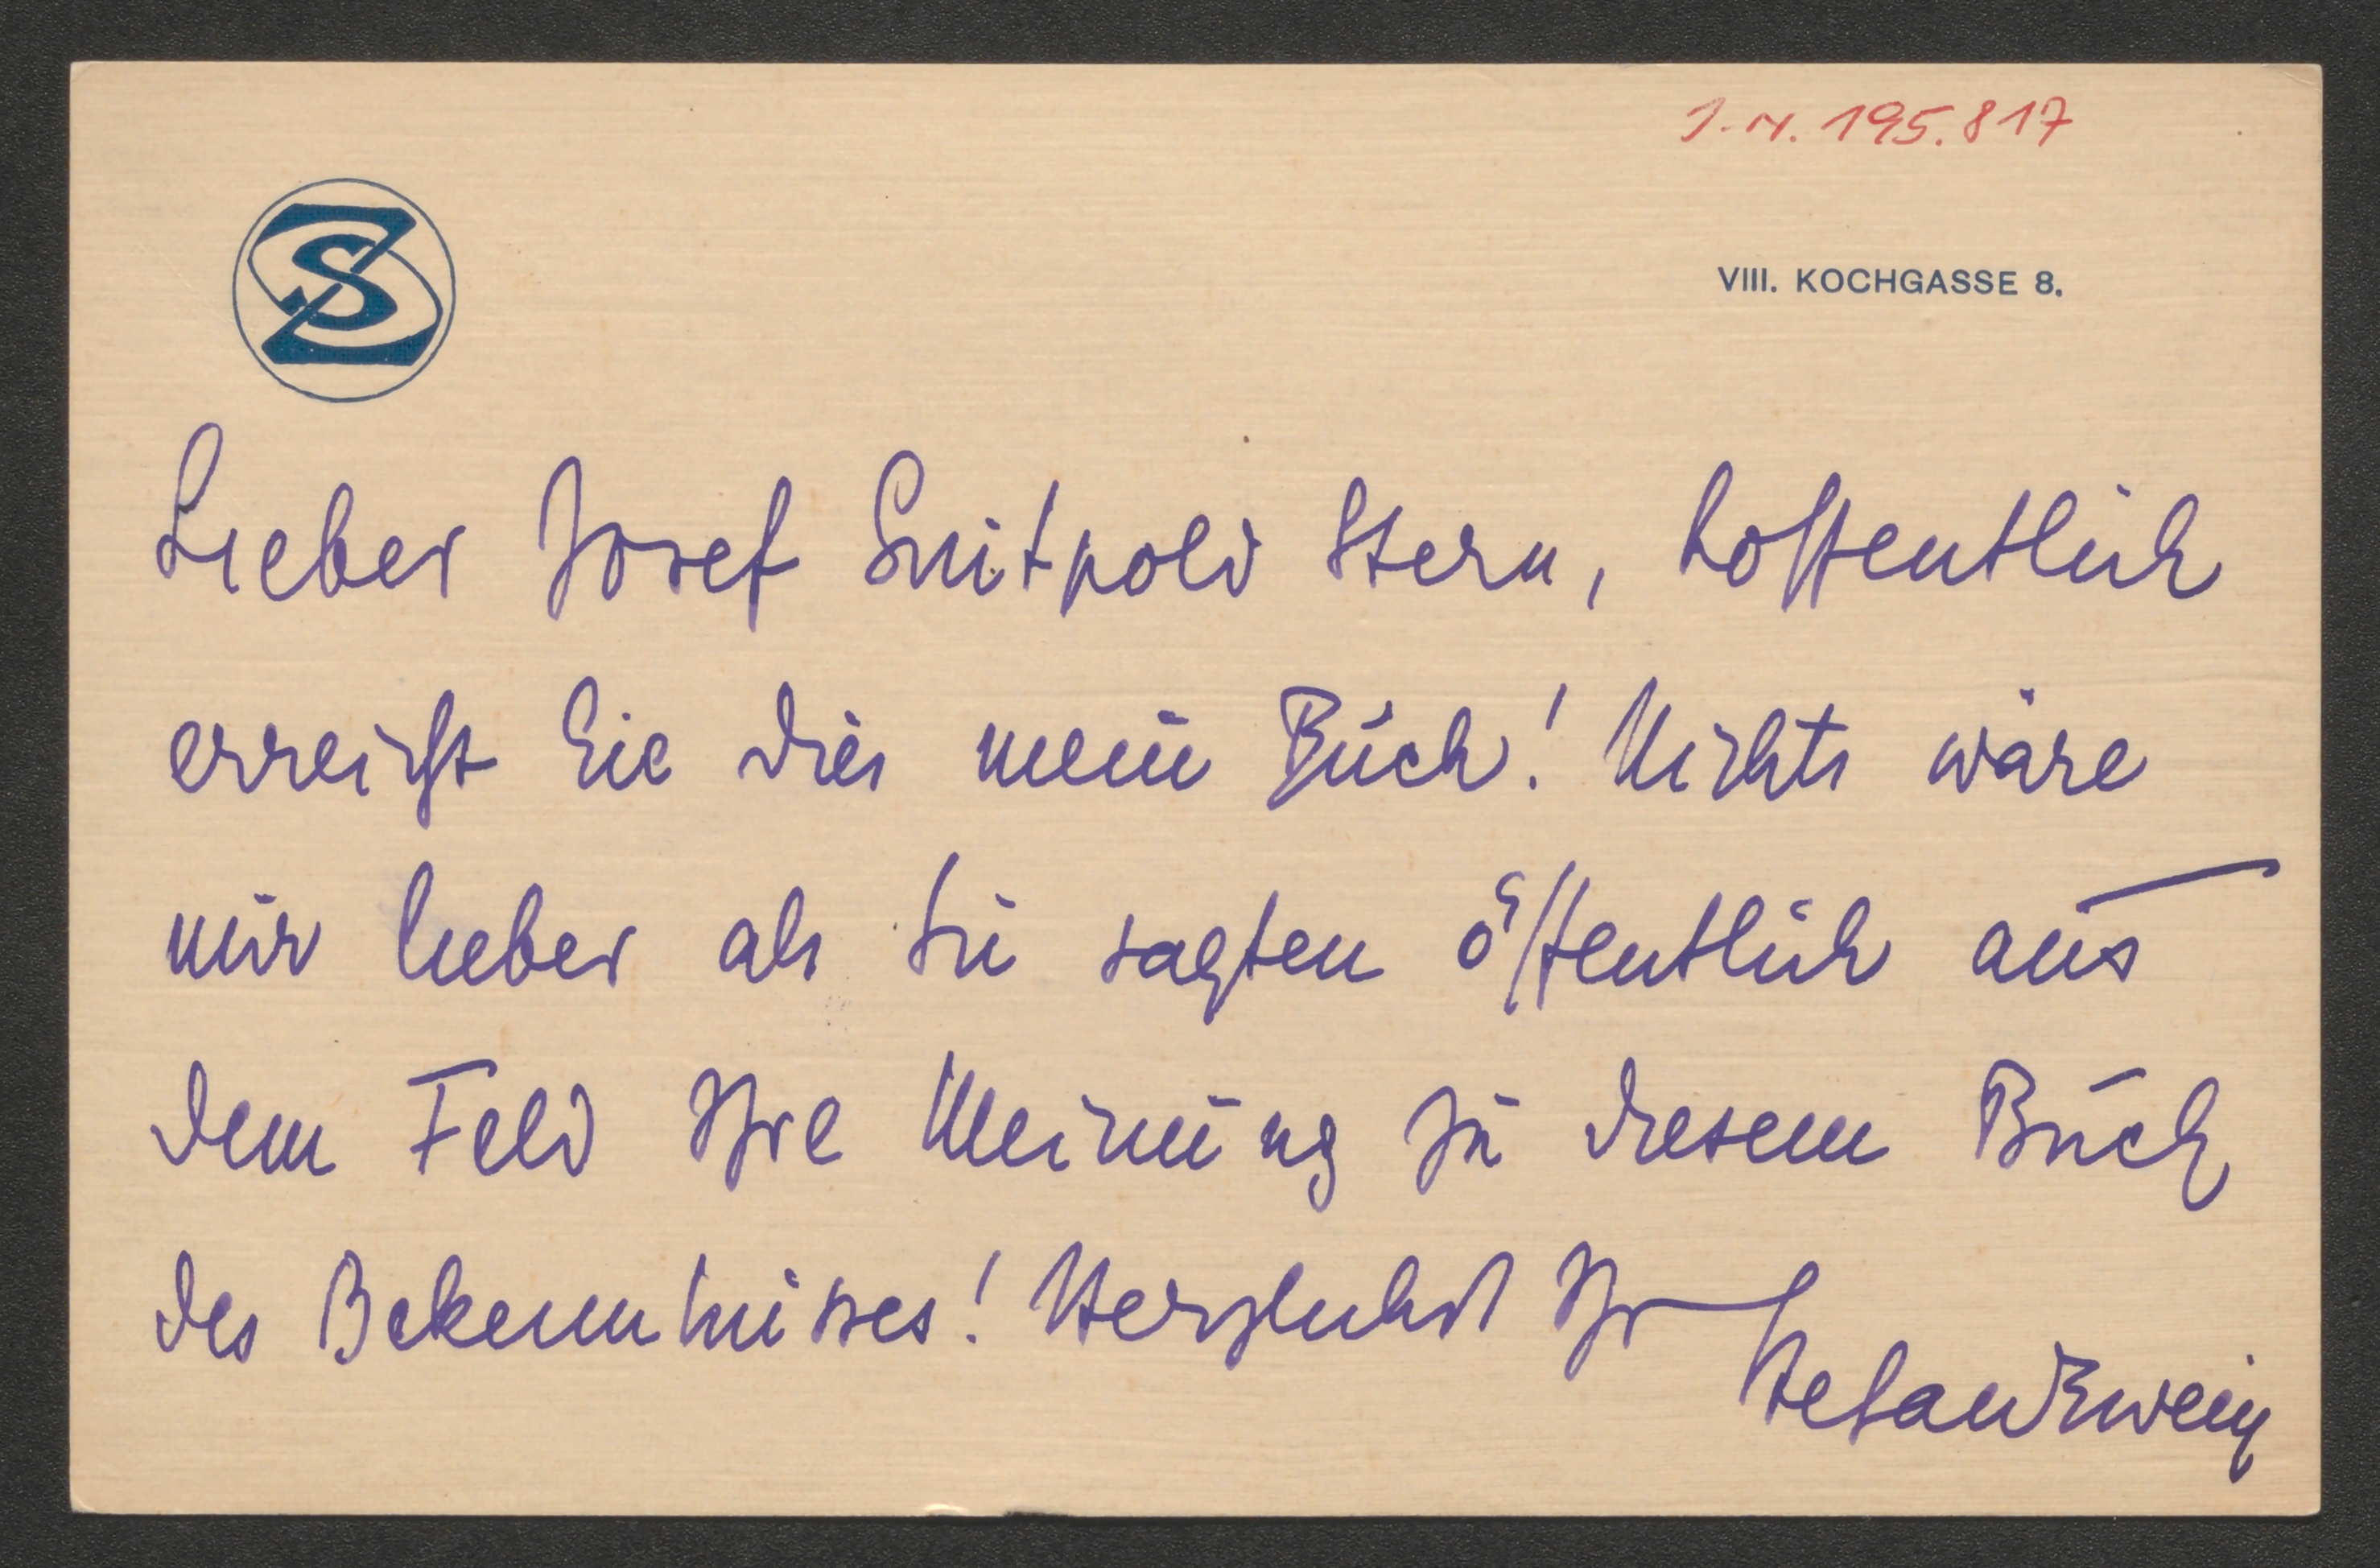 I.N. 195.817
SZ
VIII. KOCHGASSE 8.
Lieber Josef Luitpold Stern, hoffentlich
erreicht Sie dies mein Buch! Nichts wäre
mir lieber als Sie sagten öffentlich aus
dem Feld Ihre Meinung zu diesem Buch
des Bekenntnisses! Herzlichst Ihr
Stefan Zweig